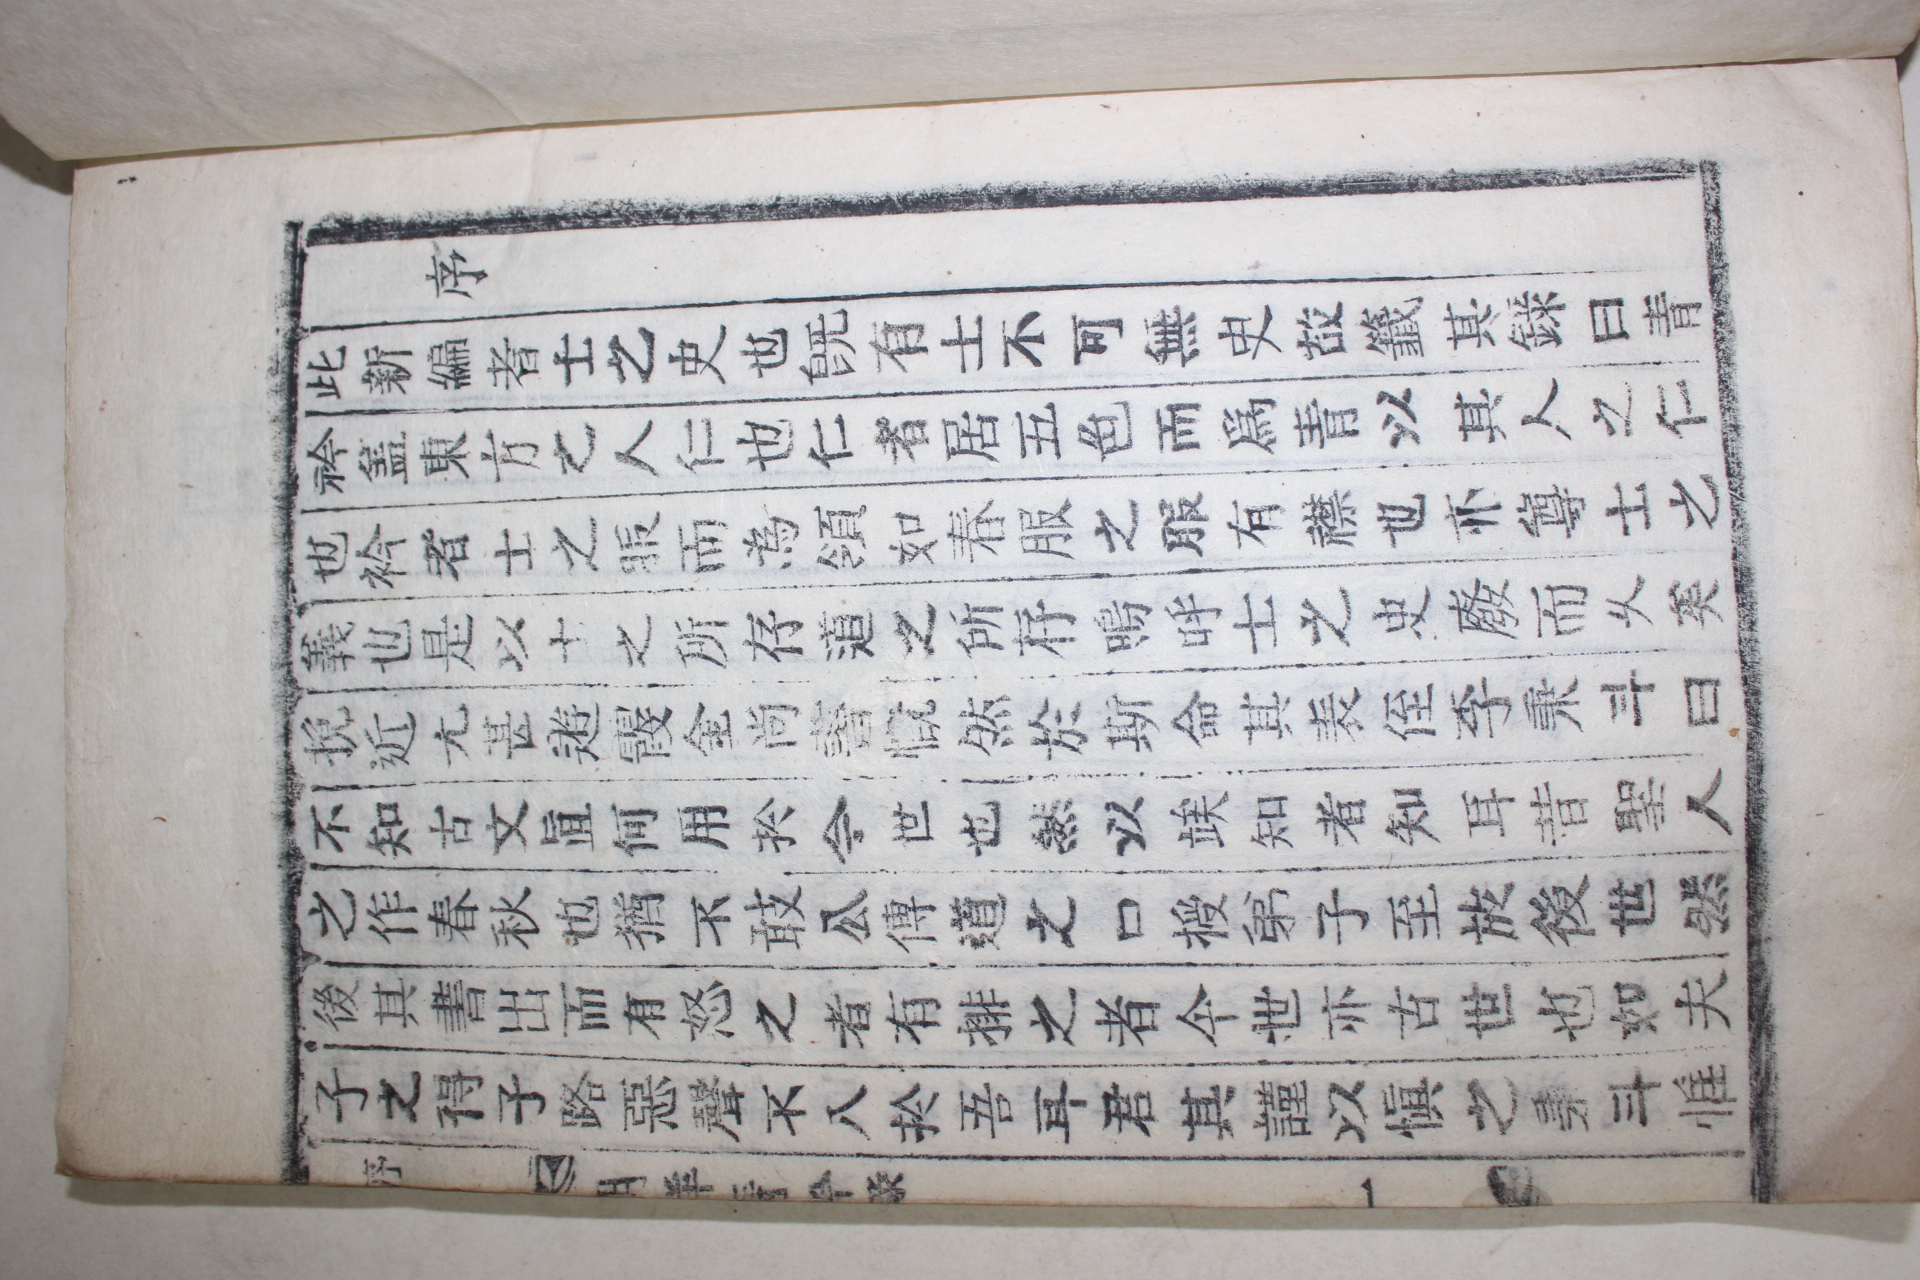 序
此新編者士之史也旣有士不可無史故籤其錄曰青
衿盖東方之人仁也仁者居五色而爲青以其人之仁
也衿者士之服而為領如春服之服有襟也亦尊士之
義也是以士之所存道之所存嗚呼士之史廢而久矣
挽近尤甚遯霞金尚書慨然於斯命其表侄李秉斗曰
不知古文眞何用於今世也然以竢知者知耳昔聖人
之作春秋也猶不敢公傳道之口授弟子至於後世然
後其書出而有怒之者有排之者今世亦古世也如夫
子之得子路惡聲不入於吾耳君其謹以愼之秉斗惟
序
青衿錄
一